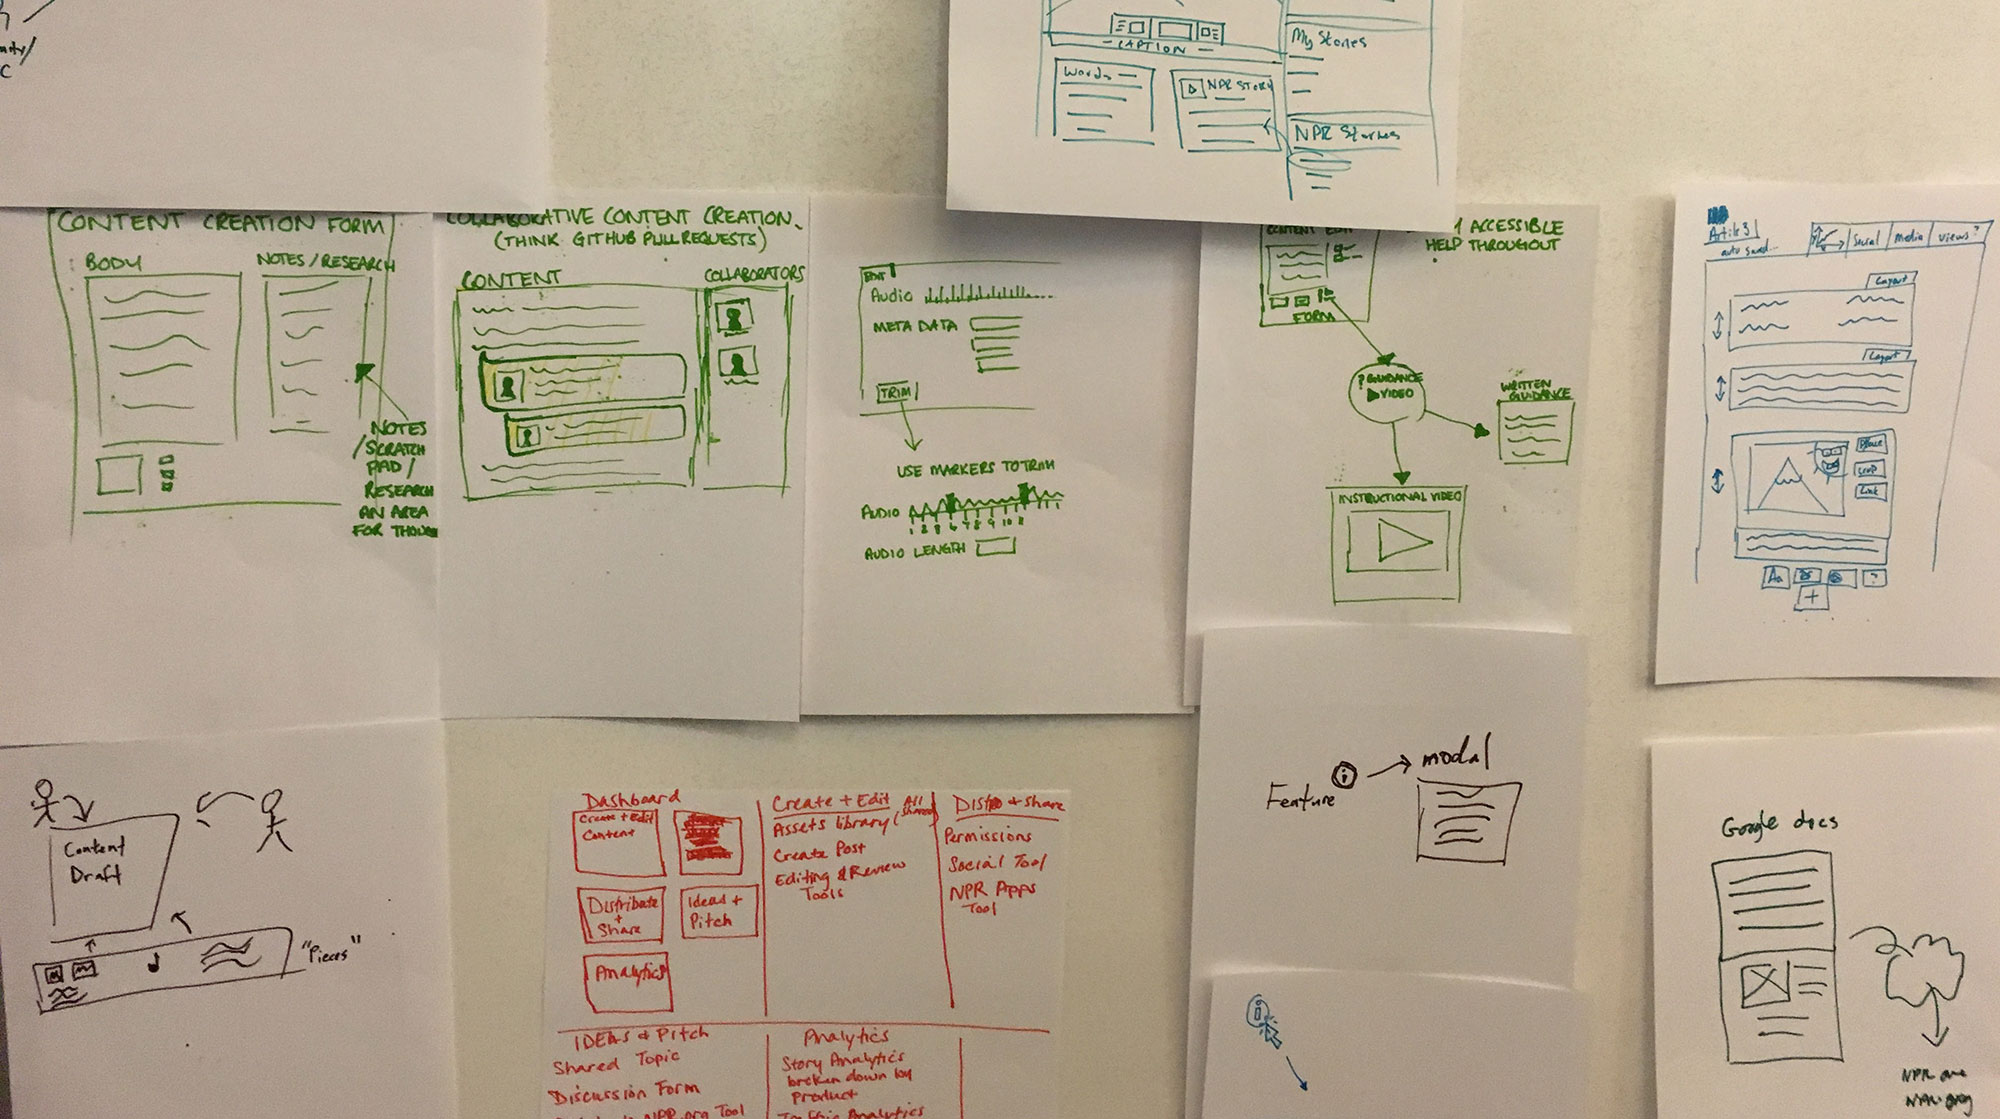 CAPTION
Words
NPR STORY
My Stories
NPR Stories
CONTENT CREATION FORM
BODY
NOTES / RESEARCH
NOTES
/SCRATCH
PAD /
RESEARCH
AN AREA
FOR
COLLABORATIVE CONTENT CREATION
(THINK GITHUB PULL REQUESTS)
CONTENT
COLLABORATORS
EDIT
AUDIO
META DATA
TRIM
USE MARKERS TO TRIM
AUDIO
AUDIO LENGTH
ACCESSIBLE
HELP THROUGHOUT
CONTENT EDIT
FORM
? GUIDANCE
VIDEO
WRITTEN
GUIDANCE
INSTRUCTIONAL VIDEO
auto saved...
Social
media
views?
Layout
Layout
crop
link
Aa
?
+
Content
Draft
"Pieces"
Dashboard
Create + Edit
Content
Distribute
+
Share
Ideas +
Pitch
Analytics
Create + Edit
Assets library (All shared)
Create Post
Editing & Review
Tools
+ Share
Permissions
Social Tool
NPR Apps
Tool
IDEAS & Pitch
Shared Topic
Discussion Form
Analytics
Story Analytics
broken down by
product
Traffic Analytics
Feature
i
modal
i
Google docs
NPR one
NPR.org